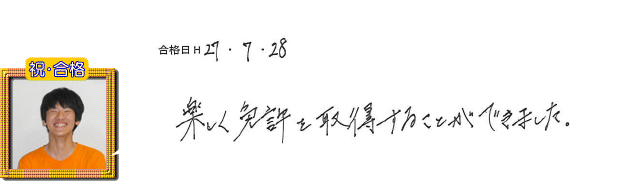 合格日 H 27・7・28
祝・合格
楽しく免許を取得することができました。